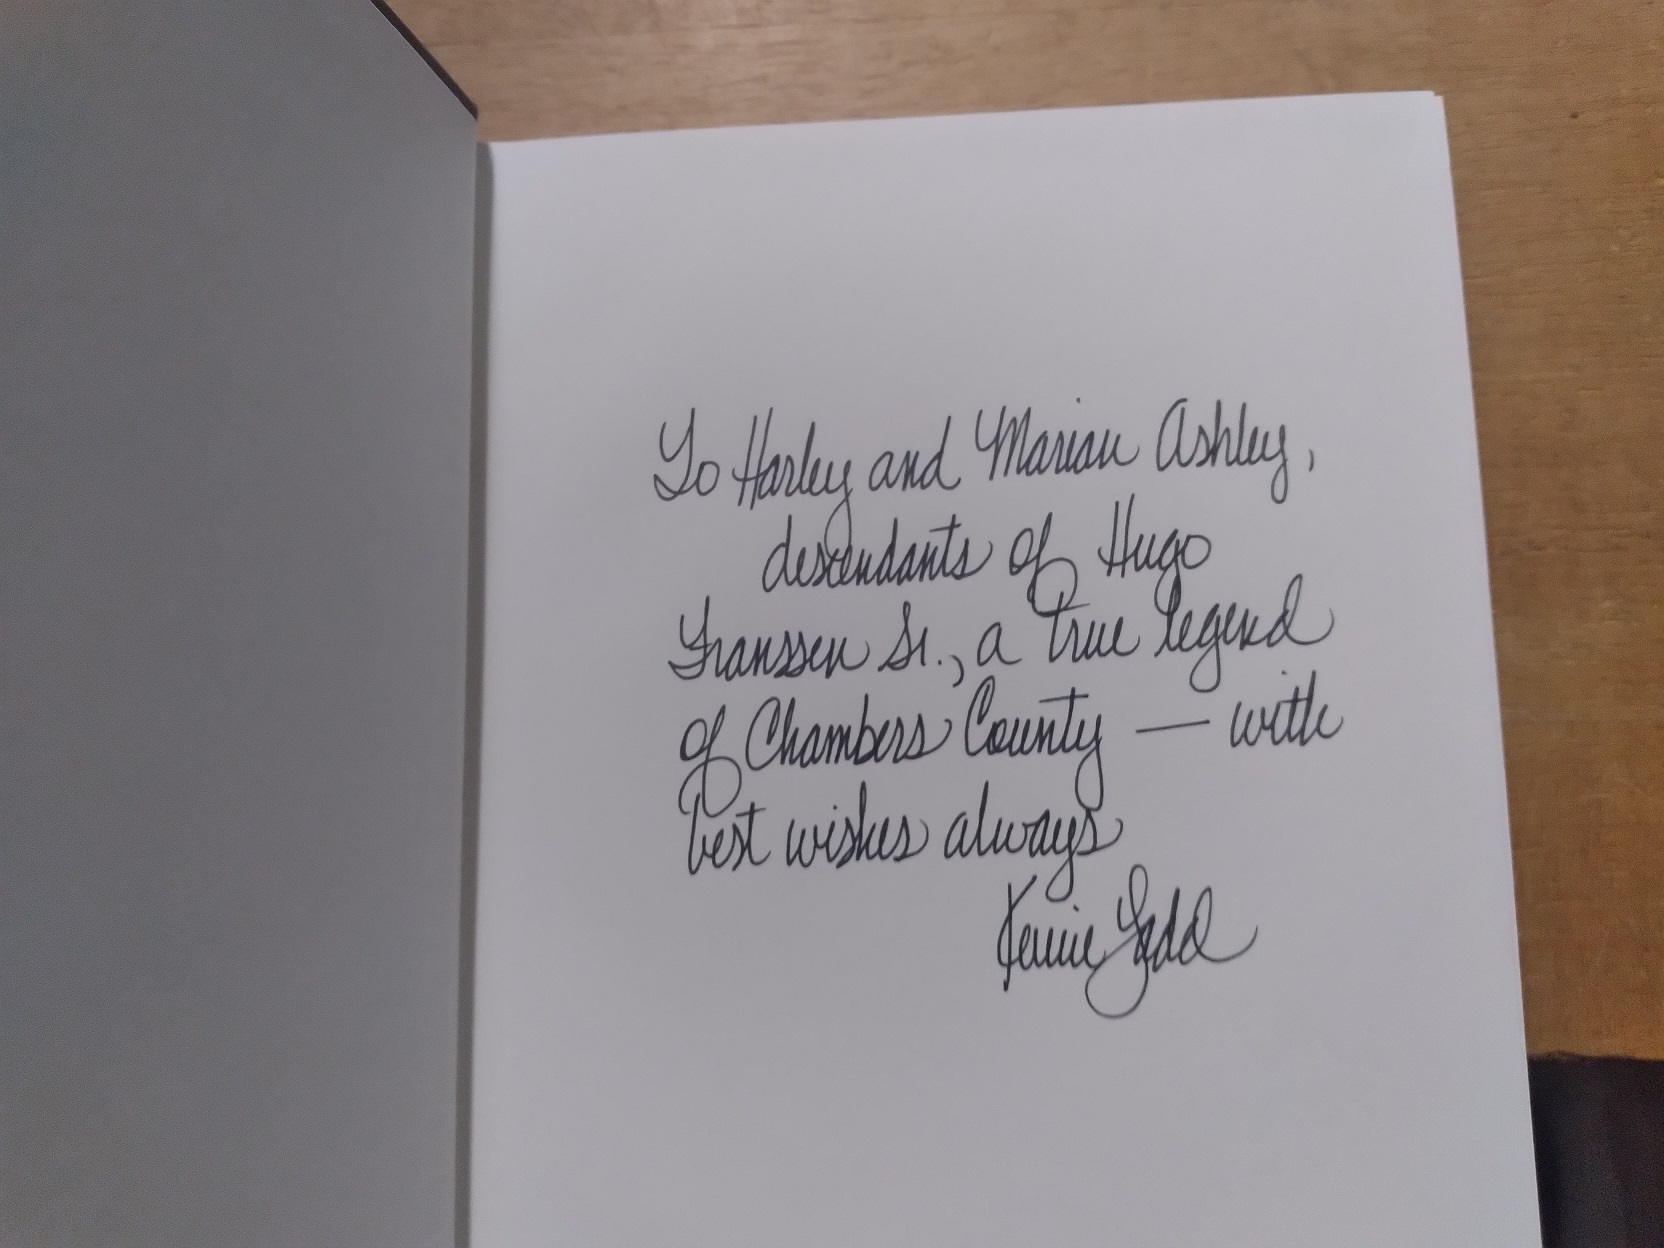 To Harley and Marian Ashley,
descendants of Hugo
Franssen Sr., a true legend
of Chambers County — with
best wishes always
Kevin Ladd